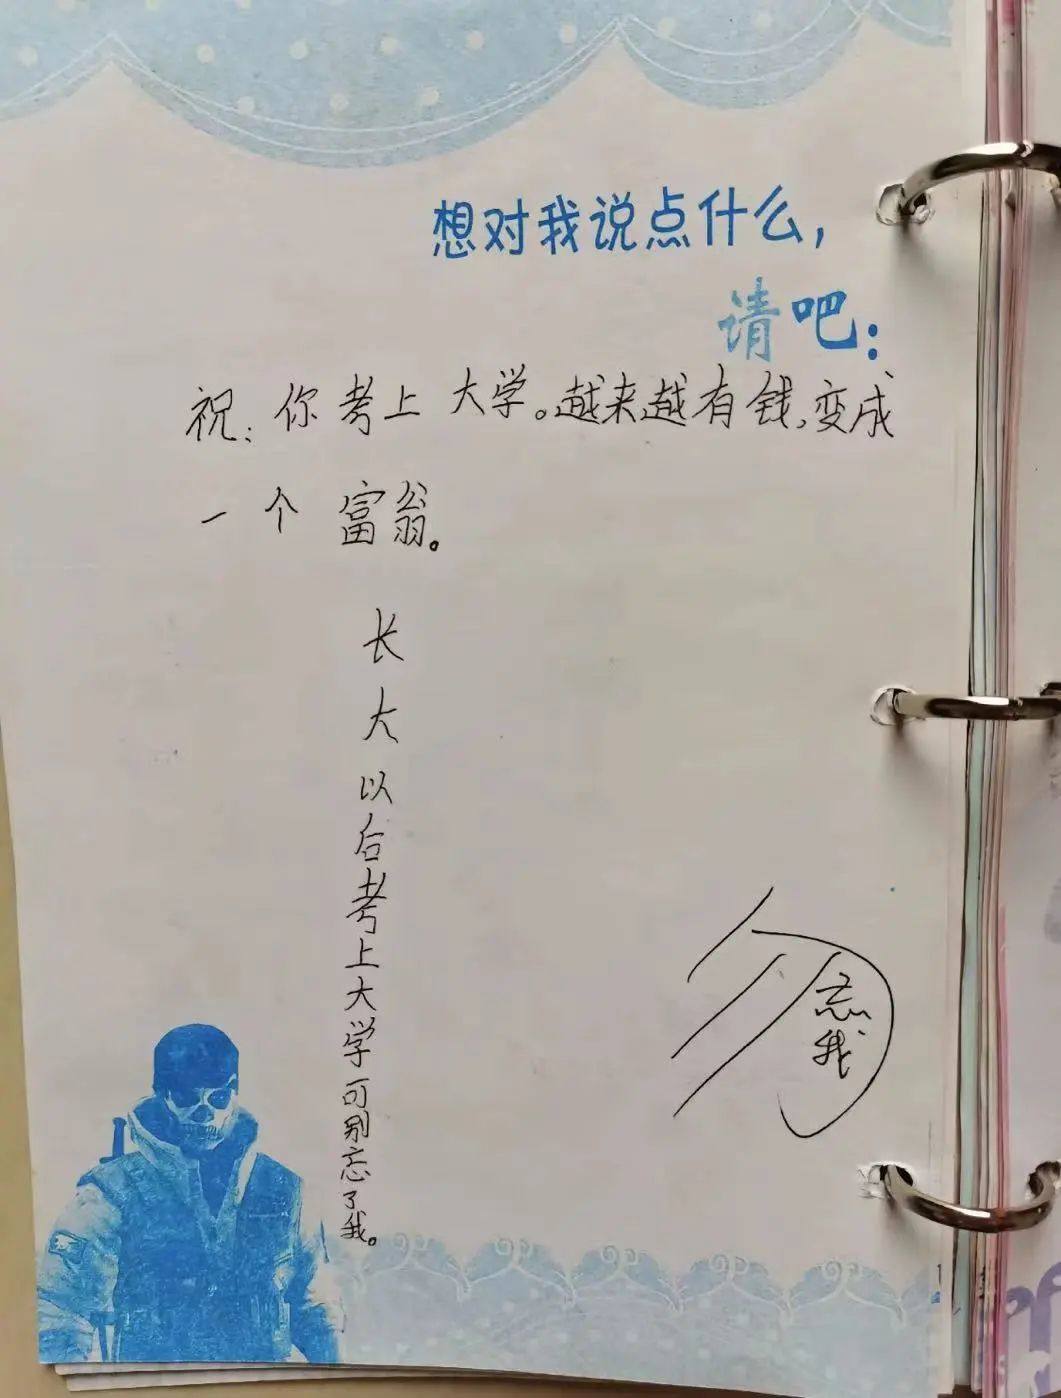 想对我说点什么，
请吧：
祝：你考上大学。越来越有钱，变成
一个富翁。
长大以后考上大学可别忘了我。
勿忘我